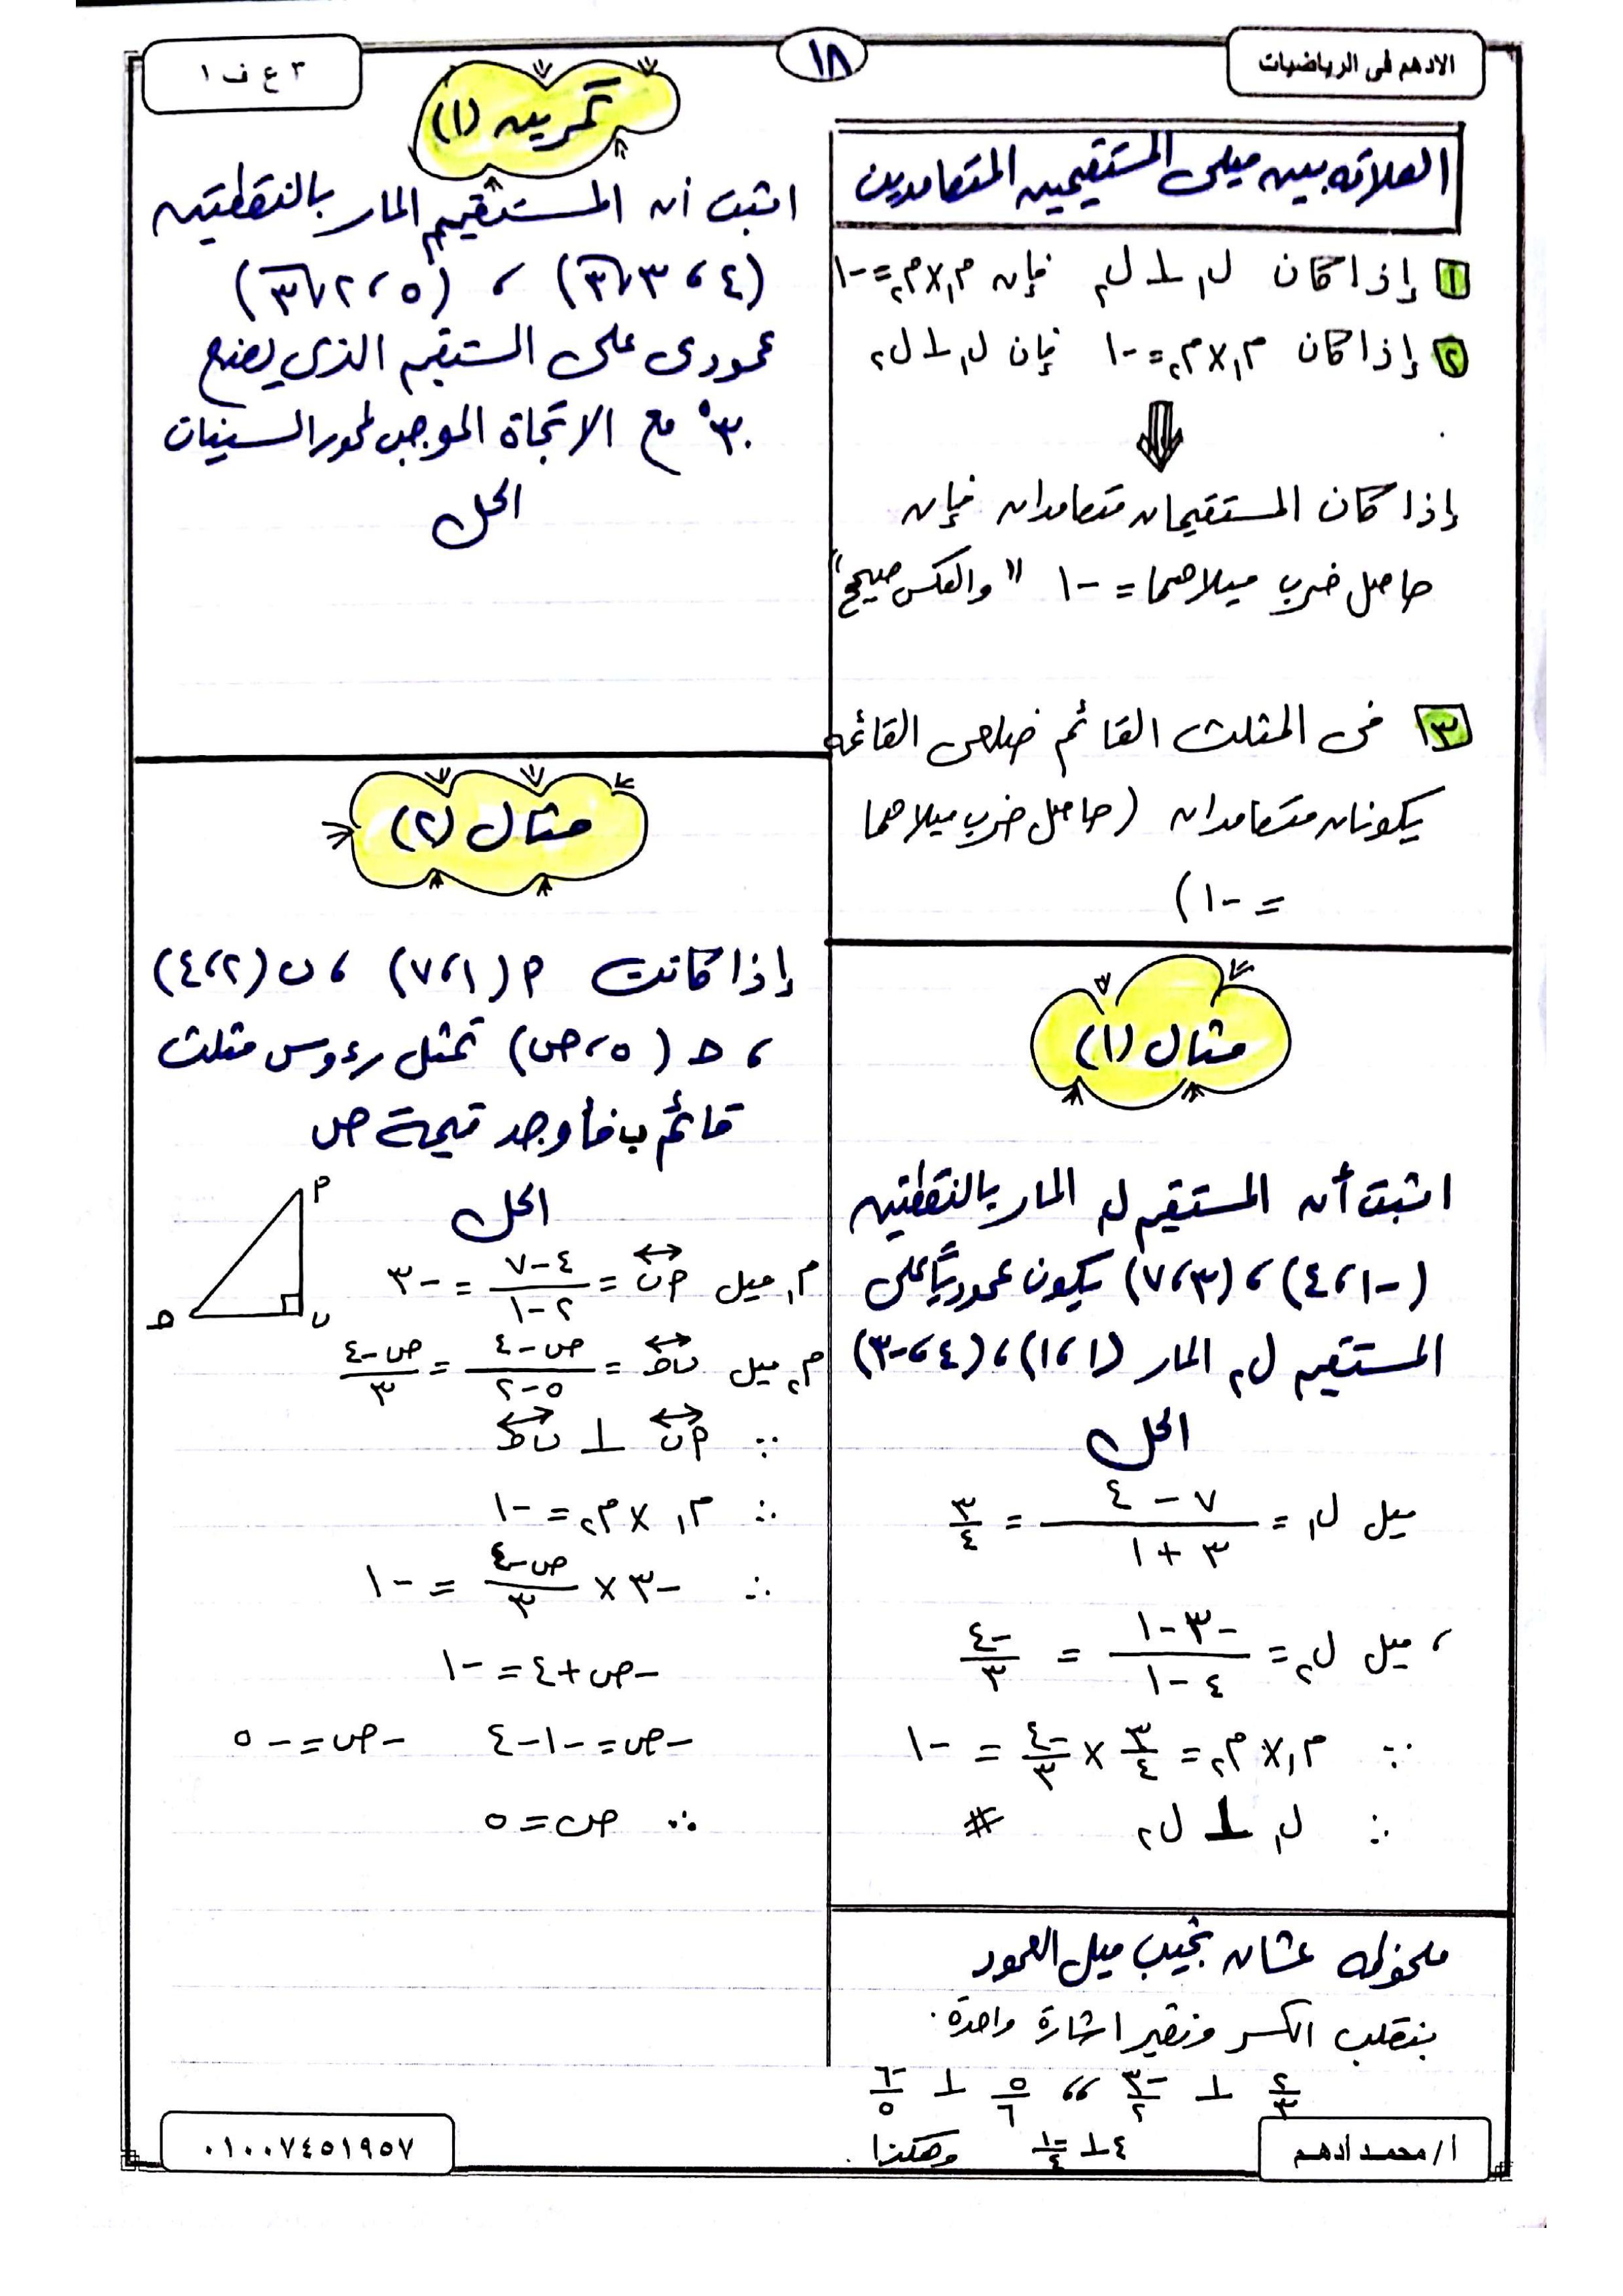 الادهم فى الرياضيات
١٨
٣ ع ف ١
العلاقه بين ميلى المستقيمين المتعامدين
١ إذا كان ل₁ ⊥ ل₂ فإن م₁ × م₂ = -١
٢ إذا كان م₁ × م₂ = -١ فإن ل₁ ⊥ ل₂
⇓
إذا كان المستقيمان متعامدان فإن
حاصل ضرب ميلاهما = -١ "والعكس صحيح"
٣ فى المثلث القائم ضلعى القائمه
يكونان متعامدان (حاصل ضرب ميلاهما
= -١)
مثال (١)
اثبت أن المستقيم ل₁ المار بالنقطتين
(-١، ٤)، (٣، ٧) يكون عموديًا على
المستقيم ل₂ المار (١، ١)، (٤، -٣)
الحل
ميل ل₁ = (٧ - ٤)/(٣ + ١) = ٣/٤
، ميل ل₂ = (-٣ - ١)/(٤ - ١) = -٤/٣
∵ م₁ × م₂ = ٣/٤ × -٤/٣ = -١
∴ ل₁ ⊥ ل₂ #
ملحوظه عشان نجيب ميل العمود
بنقلب الكسر ونغير اشارة واحدة.
٢/٣ ⊥ -٣/٢ ،، ٥/٦ ⊥ -٦/٥
٤ ⊥ -١/٤ وهكذا.
تمرين (١)
اثبت أن المستقيم المار بالنقطتين
(٤، ٣√٣) ، (٥، ٢√٣)
عمودى على المستقيم الذى يصنع
٣٠° مع الاتجاة الموجب لمحور السينات
الحل
مثال (٢)
إذا كانت P (١، ٧) ، ب (٢، ٤)
، ح (٥، ص) تمثل رءوس مثلث
قائم ب فأوجد قيمة ص
الحل
P
ب
ح
م₁ ميل Pب = (٤ - ٧)/(٢ - ١) = -٣
م₂ ميل بح = (ص - ٤)/(٥ - ٢) = (ص - ٤)/٣
∵ Pب ⊥ بح
∴ م₁ × م₂ = -١
∴ -٣ × (ص - ٤)/٣ = -١
-ص + ٤ = -١
-ص = -١ - ٤ -ص = -٥
∴ ص = ٥
أ/ محمد أدهم
٠١٠٠٧٤٥١٩٥٧